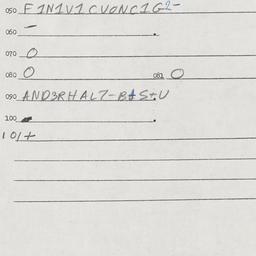 050 F1N1V1CVONC1G2-
060 - .
070 O
080 O 081 O
090 AND3RHAL7-B1S+U
100 - .
101+